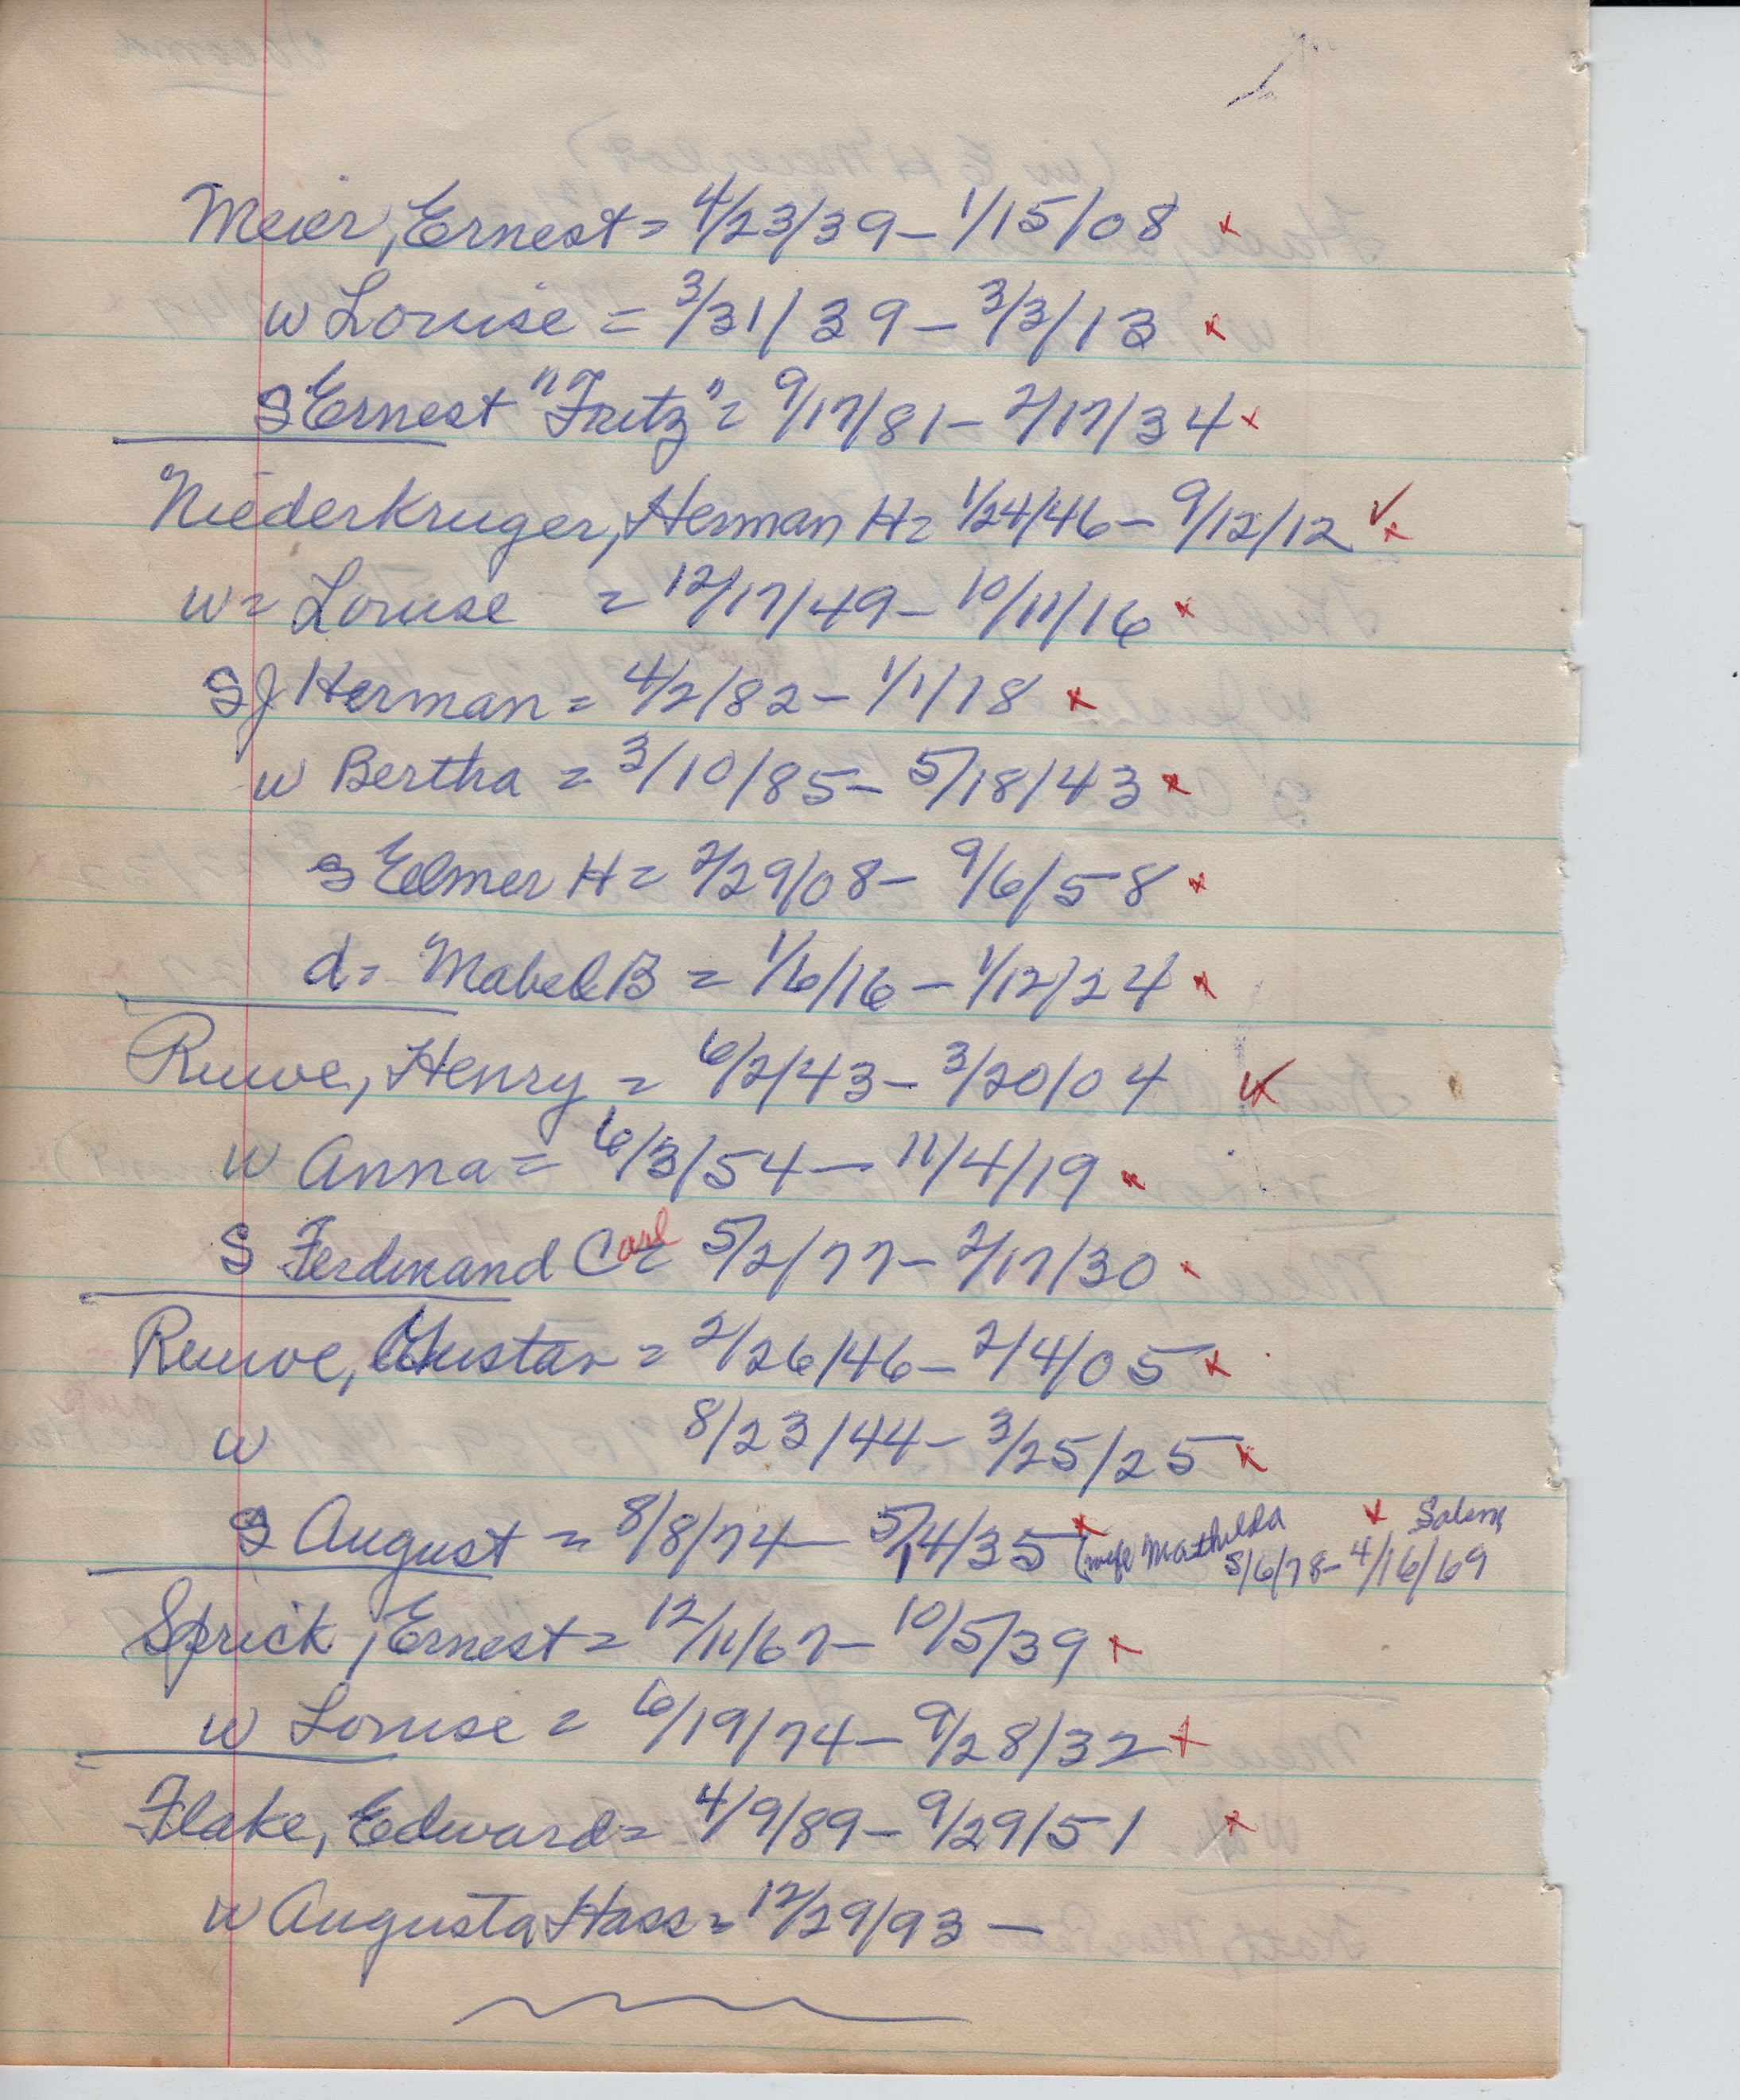 Meier, Ernest = 4/23/39 - 1/15/08 x
w Louise = 3/31/39 - 3/3/13 x
S Ernest "Fritz" = 9/17/81 - 2/17/34 x
Niederkruger, Herman H = 1/24/46 - 9/12/12 ✓ x
w = Louise = 12/17/49 - 10/11/16 x
S J Herman = 4/2/82 - 1/1/18 x
w Bertha = 3/10/85 - 5/18/43 x
s Elmer H = 2/29/08 - 9/6/58 x
d = Mabel B = 1/6/16 - 1/12/24 x
Ruwe, Henry = 6/2/43 - 3/20/04 ✓ x
w Anna = 6/3/54 - 11/4/19 x
S Ferdinand Carl = 5/2/77 - 2/17/30 x
Ruwe, Gustav = 2/26/46 - 2/4/05 x
w 8/23/44 - 3/25/25 x
S August = 8/8/74 - 5/14/35 x (wife Mathilda x Salem
5/6/78 - 4/16/69
Sprick, Ernest = 12/11/67 - 10/5/39 x
w Louise = 6/19/74 - 9/28/32 x
Flake, Edward = 4/9/89 - 9/29/51 x
w Augusta Hass = 12/29/93 -